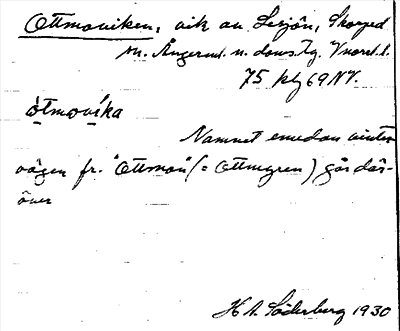 Ottmoviken, vik av Lesjön, Skorped
sn. Ångerml. n. doms.lg. V norrl. l.
75 kbl 69 NV.
òtmovíka
Namnet emedan vinter
vägen fr. "Ottmon" (= Ottmyren) går där-
över
H A. Söderberg 1930